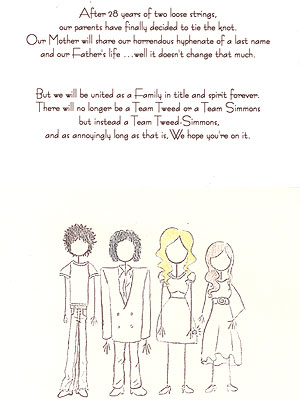 After 28 years of two loose strings,
our parents have finally decided to tie the knot.
Our Mother will share our horrendous hyphenate of a last name
and our Father's life ...well it doesn't change that much.
But we will be united as a Family in title and spirit forever.
There will no longer be a Team Tweed or a Team Simmons
but instead a Team Tweed-Simmons,
and as annoyingly long as that is, We hope you're on it.